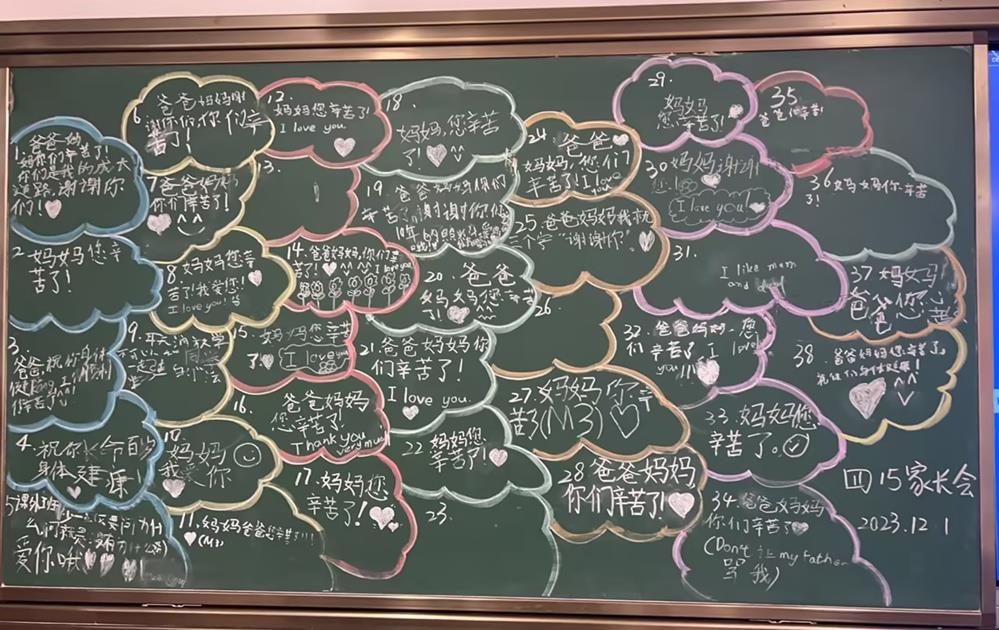 1. 爸爸妈
妈你们辛苦了!
你们是我的成长
道路,谢谢你
们!
2. 妈妈您辛
苦了!
3.
爸爸,祝你身体
健康,工作顺利
你辛苦了!
4. 祝你长命百岁
身体健康
5
爱你哦
6 爸爸妈妈谢
谢你们你们辛
苦了!
7 爸爸妈妈
你们辛苦了!
8. 妈妈您辛
苦了!我爱您!
I love you!
9.
10.
妈妈
我爱你
11. 妈妈爸爸您辛苦了!!!
(M3)
12.
妈妈您辛苦了!
I love you
13.
14. 爸爸妈妈,你们辛
苦了! I love you
15. 妈妈您辛苦
了 I love you
16. 爸爸妈妈
您辛苦了!
Thank you
very much
17. 妈妈您
辛苦了!
18.
妈妈,您辛苦
了!
19
爸爸妈妈你们
辛苦了!谢谢你们
10年的
20. 爸爸
妈妈您辛苦
了!
21. 爸爸妈妈你
们辛苦了!
I love you.
22 妈妈您
辛苦了!
23.
24 爸爸
妈妈,您们
辛苦了! I love
you
25. 爸爸妈妈我就
三个字“谢谢你”
26
27. 妈妈你辛
苦了(M3)
28 爸爸妈妈,
你们辛苦了!
29.
妈妈
您辛苦了!
30 妈妈谢谢
您!
I love you!
31.
I like mom
and dad
32. 爸爸妈妈,您
们辛苦了 I love
you!!!
23. 妈妈您
辛苦了。
34. 爸爸妈妈
你们辛苦了
(Don't 让 my father
骂我)
35.
爸爸你辛苦!
36 妈妈你辛苦
了!
37 妈妈
爸爸您辛苦
38. 爸爸妈妈您辛苦了,
祝你们身体健康!
四15家长会
2023.12 1